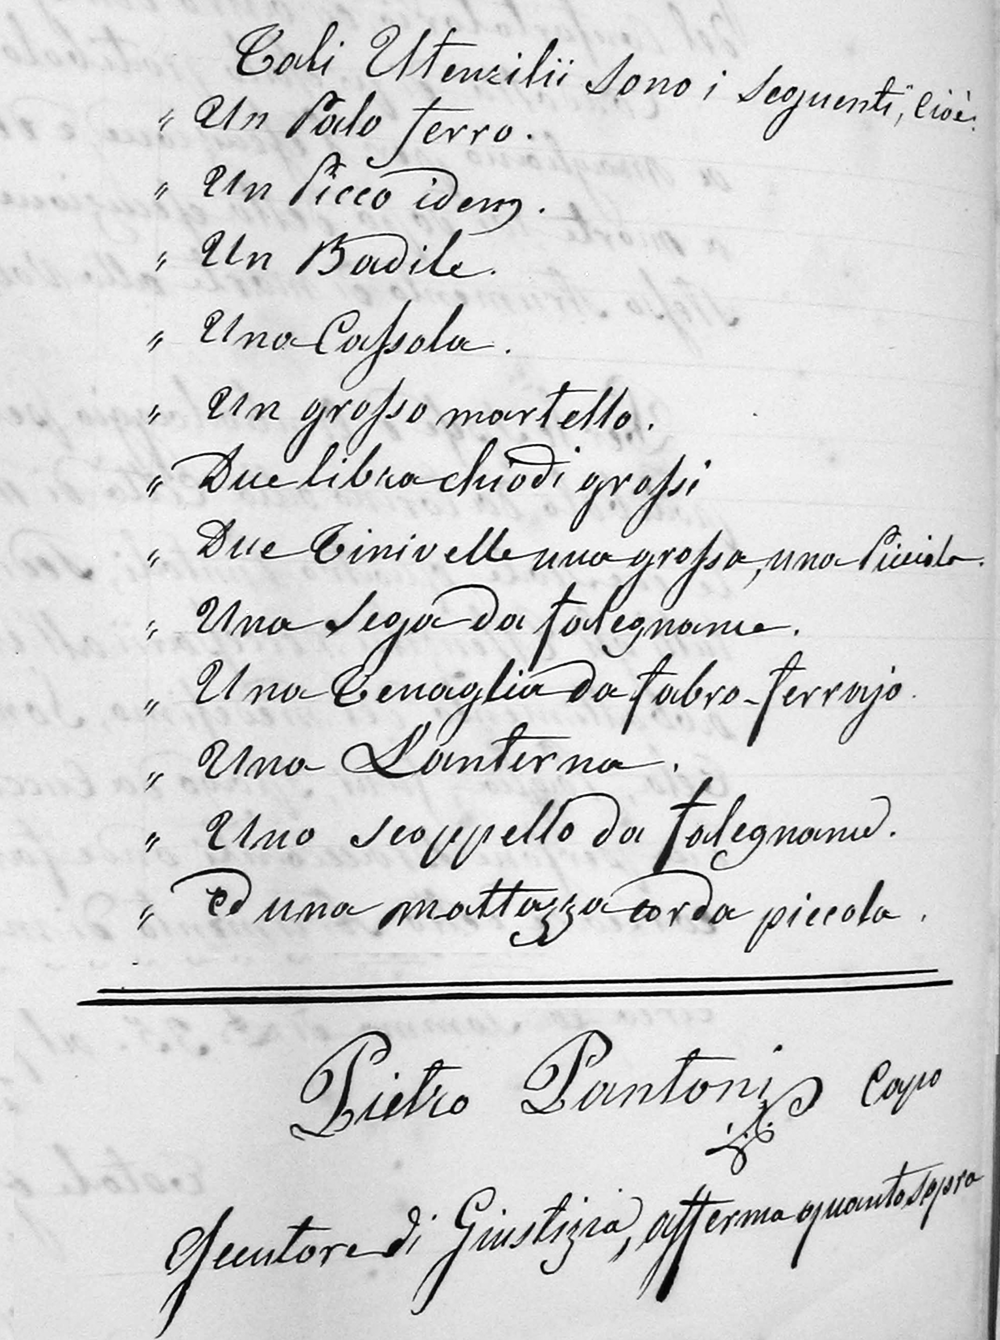 Tali Utenzilii sono i seguenti, cioè:
" Un Palo ferro.
" Un Picco idem.
" Un Badile.
" Una Cassola.
" Un grosso martello.
" Due libra chiodi grossi
" Due Tinivelle una grossa, una Piccola.
" Una sega da falegname.
" Una Tenaglia da fabro-ferrajo.
" Una Lanterna.
" Uno scoppello da falegname.
" Ed una mattazza corda piccola.
Pietro Pantoni Capo
Esecutore di Giustizia, afferma quanto sopra